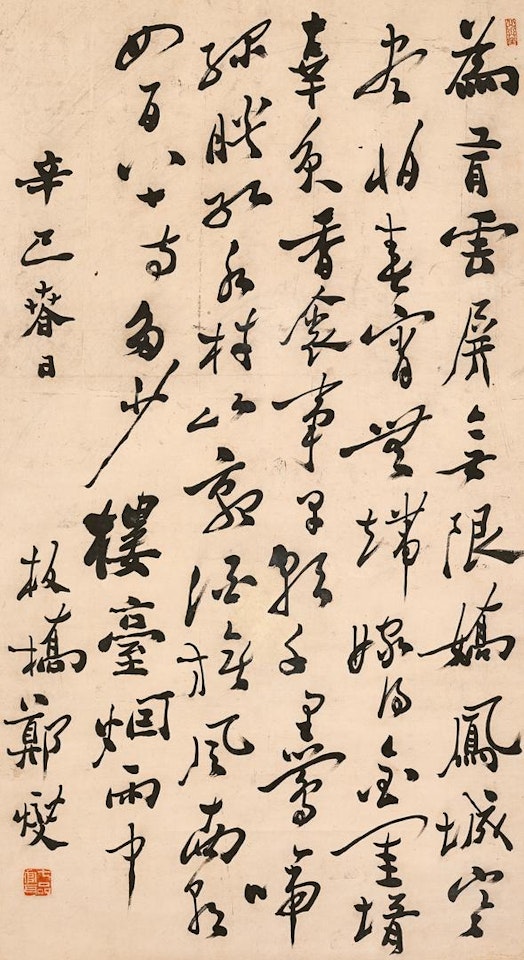 為有雲屏無限嬌鳳城寒
盡怕春宵無端嫁得金龜婿
辜負香衾事早朝千里鶯啼
綠映紅水村山郭酒旗風南朝
四百八十寺多少樓臺烟雨中
辛巳春日 板橋鄭燮